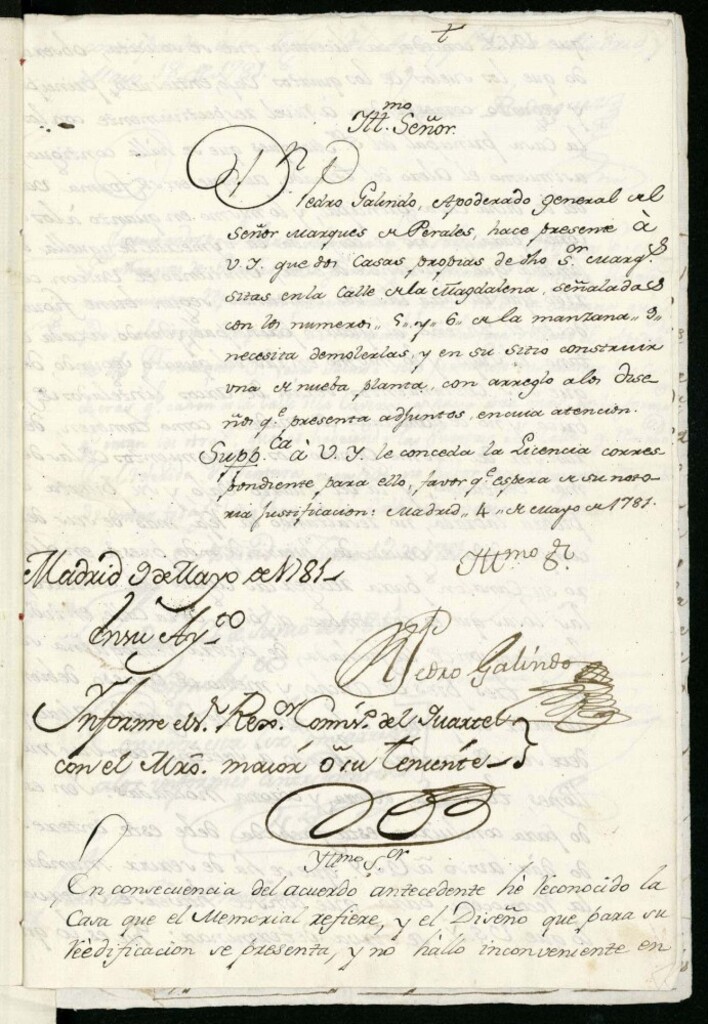 +
Ill.mo Señor.
D.n Pedro Galindo, Apoderado general del
Señor Marques de Perales, hace presente à
V. I. que dos Casas propias de dho S.or Marq.s
sitas en la Calle de la Magdalena, señaladas
con los numeros,, 5,, y,, 6,, de la manzana,, 9,,
necesita demolerlas, y en su sitio construir
una de nueba planta, con arreglo a los dise
ños q.e presenta adjuntos, en cuia atencion.
Supp.ca à V. I. le conceda la Licencia corres
pondiente para ello, favor q.e espera de su noto
ria justificacion: Madrid,, 4,, de Mayo de 1781.
Ill.mo S.r
Madrid 9 de Mayo de 1781
En su Ay.to
Pedro Galindo
Informe el S.r Rex.or Comis.o del Quartel
con el Mro. maior ò su Teniente
Yllmo S.or
En consecuencia del acuerdo antecedente hè reconocido la
Casa que el Memorial refiere, y el Diseño que para su
reedificacion se presenta, y no hallo inconveniente en